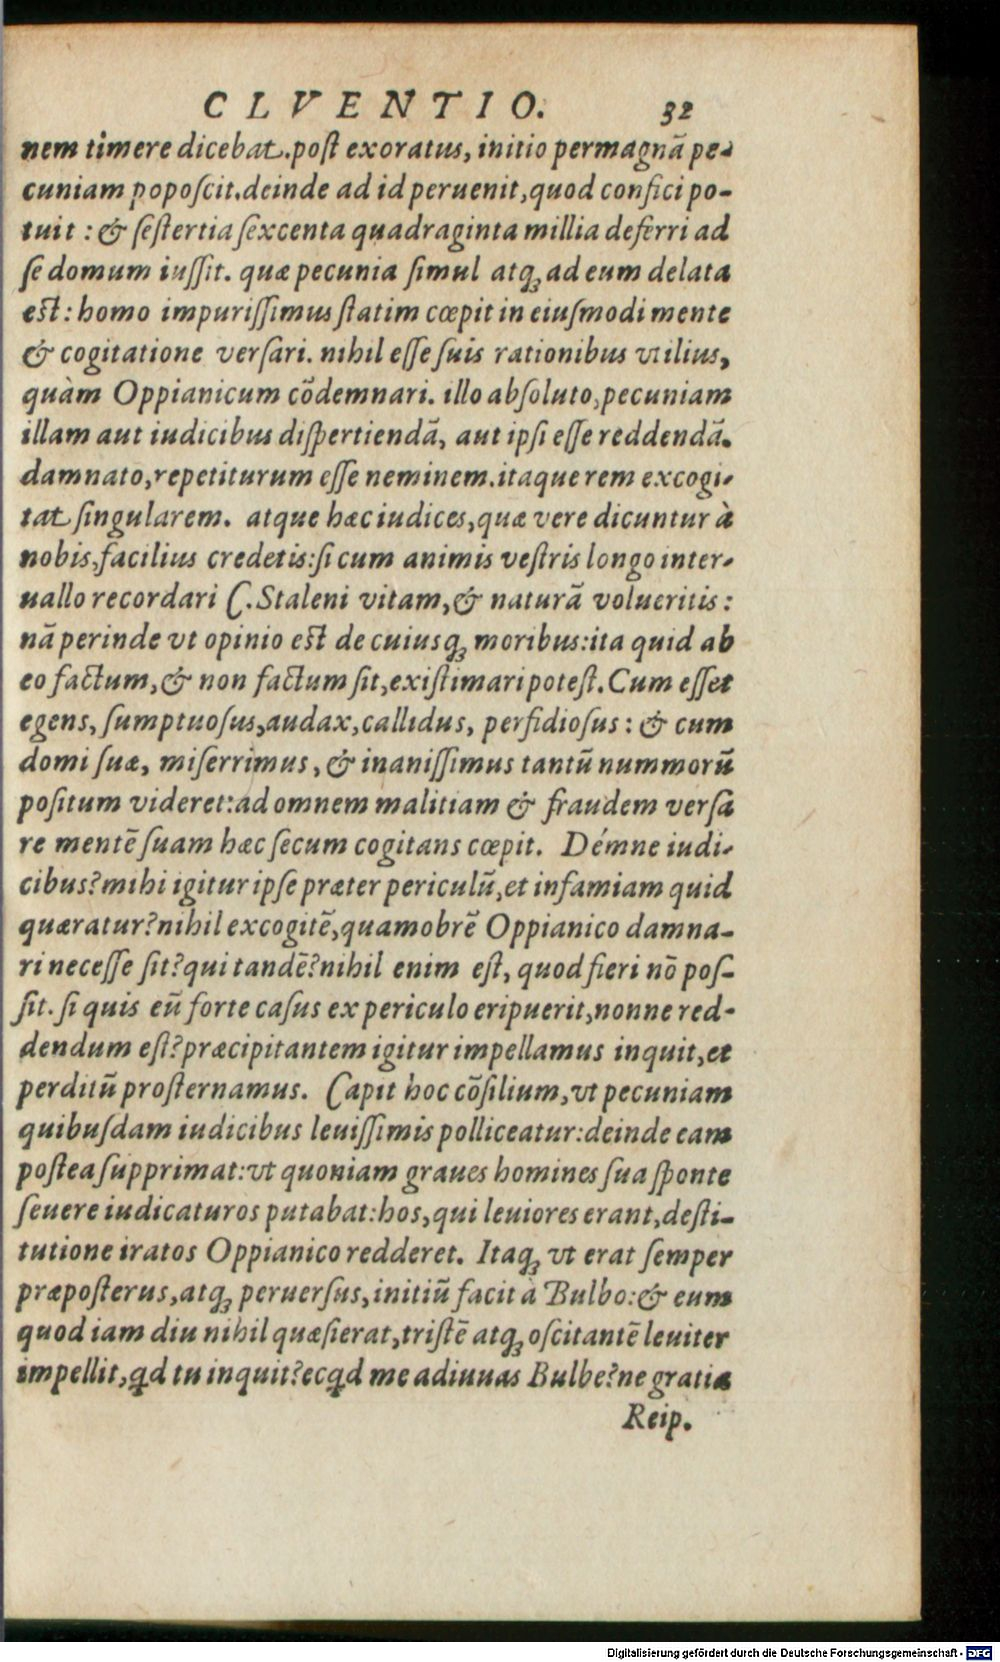 CLVENTIO. 32
nem timere dicebat. post exoratus, initio permagnā pe-
cuniam poposcit. deinde ad id peruenit, quod confici po-
tuit : & sestertia sexcenta quadraginta millia deferri ad
se domum iussit. quæ pecunia simul atqꝫ ad eum delata
est: homo impurissimus statim cœpit in eiusmodi mente
& cogitatione versari. nihil esse suis rationibus vtilius,
quàm Oppianicum cōdemnari. illo absoluto, pecuniam
illam aut iudicibus dispertiendā, aut ipsi esse reddendā.
damnato, repetiturum esse neminem. itaque rem excogi-
tat singularem. atque hæc iudices, quæ vere dicuntur à
nobis, facilius credetis: si cum animis vestris longo inter-
uallo recordari C. Staleni vitam, & naturā volueritis:
nā perinde vt opinio est de cuiusqꝫ moribus: ita quid ab
eo factum, & non factum sit, existimari potest. Cum esset
egens, sumptuosus, audax, callidus, perfidiosus: & cum
domi suæ, miserrimus, & inanissimus tantū nummorū
positum videret: ad omnem malitiam & fraudem versa
re mentē suam hæc secum cogitans cœpit. Démne iudi-
cibus? mihi igitur ipse præter periculū, et infamiam quid
quæratur? nihil excogitē, quamobrē Oppianico damna-
ri necesse sit? qui tandē? nihil enim est, quod fieri nō pos-
sit. si quis eū forte casus ex periculo eripuerit, nonne red-
dendum est? præcipitantem igitur impellamus inquit, et
perditū prosternamus. Capit hoc cōsilium, vt pecuniam
quibusdam iudicibus leuissimis polliceatur: deinde eam
postea supprimat: vt quoniam graues homines sua sponte
seuere iudicaturos putabat: hos, qui leuiores erant, desti-
tutione iratos Oppianico redderet. Itaqꝫ vt erat semper
præposterus, atqꝫ peruersus, initiū facit à Bulbo: & eum
quod iam diu nihil quæsierat, tristē atqꝫ oscitantē leuiter
impellit, qd tu inquit? ecqd me adiuuas Bulbe? ne gratia
Reip.
Digitalisierung gefördert durch die Deutsche Forschungsgemeinschaft - DFG